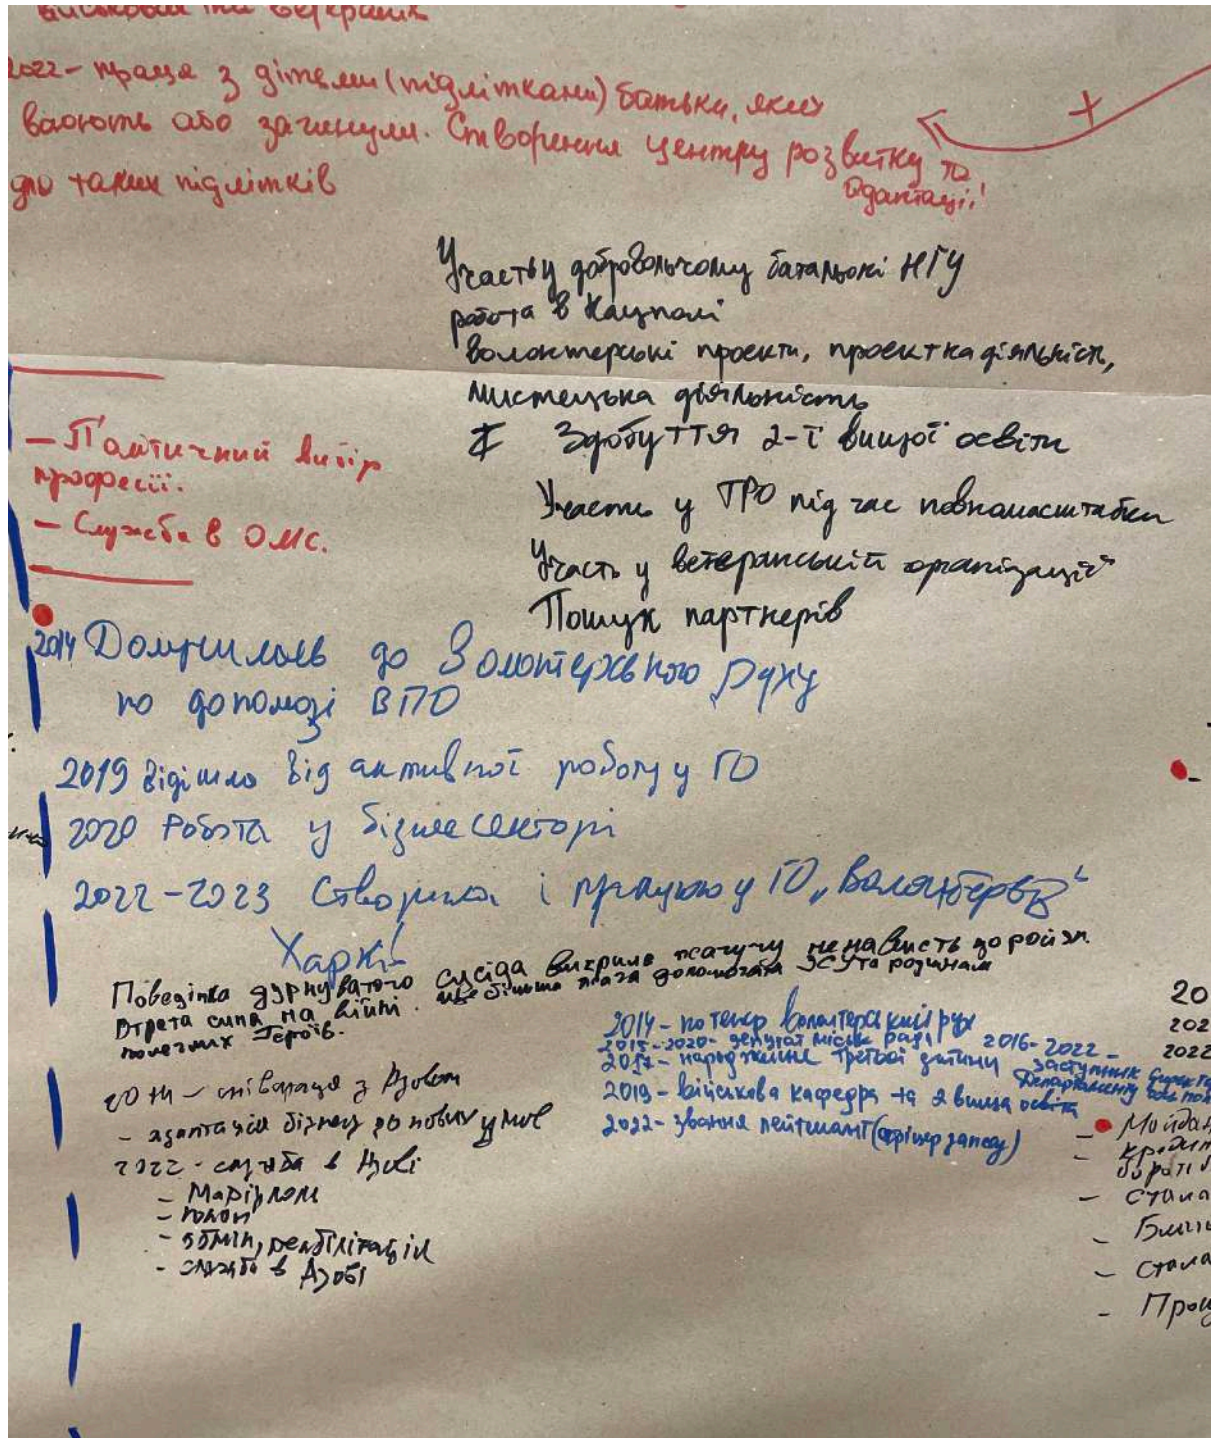 військовий та ветеранів
2022 - праця з дітьми (підлітками) батьки, яких
воюють або загинули. Створення центру розвитку та
адаптації!
для таких підлітків
Участь у добровольчому батальоні НГУ
робота в Кацполі
волонтерські проекти, проектна діяльність,
мистецька діяльність
Здобуття 2-ї вищої освіти
Участь у ТРО під час повномасштабки
Участь у ветеранській організації
Пошук партнерів
— Політичний вибір
професії.
— Служба в ОМС.
2014 Долучилась до Волонтерського руху
по допомозі ВПО
2019 відійшла від активної роботи у ГО
2020 Робота у бізнес секторі
2022-2023 Створила і працюю у ГО „
Харків
Поведінка дурнуватого сусіда викрила псачучу ненависть до росіян.
Втрата сина на війні. Ще більша нага допомогати ЗСУ та родинам
полеглих Героїв.
2014 - співпраця з Азовом
- адаптація бізнесу до нових умов
2022 - служба в Азові
- Маріуполь
- полон
- обмін, реабілітація
- служба в Азові
2014 - по тепер волонтерський рух
2015-2020 - депутат міськ ради 2016-2022 -
заступник директора
Департаменту
2017 - народження третьої дитини
2019 - військова кафедра та 2 вища освіта
2022 - звання лейтенант (офіцер запасу)
20
202
2022
- Майдан
-
-
- Стала
-
- Стала
-